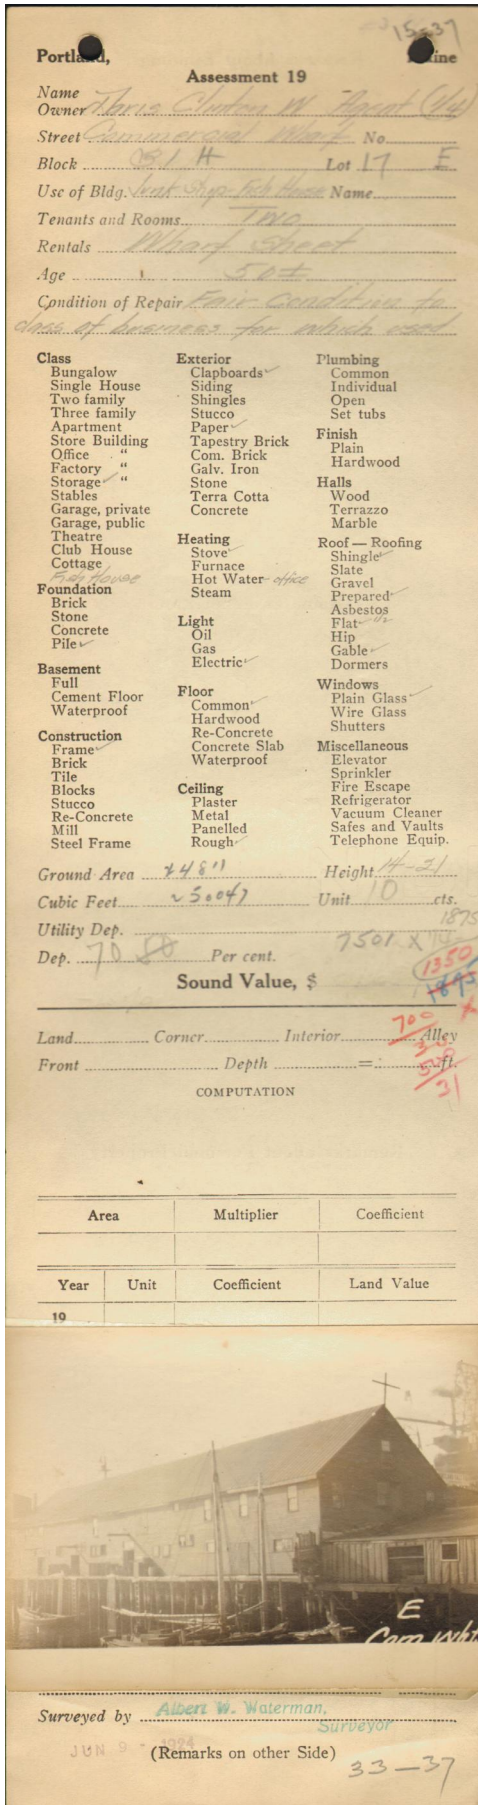 15-37
Portland, Maine
Assessment 19
Name
Owner Clinton W. Agent (1/4)
Street Commercial Wharf No.
Block 31 H Lot 17 E
Use of Bldg. Junk Shop-Fish House Name
Tenants and Rooms Two
Rentals Wharf Sheet
Age 50±
Condition of Repair Fair condition to
class of business for which used
Class
Bungalow
Single House
Two family
Three family
Apartment
Store Building
Office "
Factory "
Storage ✓ "
Stables
Garage, private
Garage, public
Theatre
Club House
Cottage
Fish House
Foundation
Brick
Stone
Concrete
Pile ✓
Basement
Full
Cement Floor
Waterproof
Construction
Frame ✓
Brick
Tile
Blocks
Stucco
Re-Concrete
Mill
Steel Frame
Exterior
Clapboards ✓
Siding
Shingles
Stucco
Paper ✓
Tapestry Brick
Com. Brick
Galv. Iron
Stone
Terra Cotta
Concrete
Heating
Stove ✓
Furnace
Hot Water - office
Steam
Light
Oil
Gas
Electric ✓
Floor
Common ✓
Hardwood
Re-Concrete
Concrete Slab
Waterproof
Ceiling
Plaster
Metal
Panelled
Rough ✓
Plumbing
Common
Individual
Open
Set tubs
Finish
Plain
Hardwood
Halls
Wood
Terrazzo
Marble
Roof — Roofing
Shingle ✓
Slate
Gravel
Prepared ✓
Asbestos
Flat ✓ 1/2
Hip
Gable ✓
Dormers
Windows
Plain Glass ✓
Wire Glass
Shutters
Miscellaneous
Elevator
Sprinkler
Fire Escape
Refrigerator
Vacuum Cleaner
Safes and Vaults
Telephone Equip.
Ground Area Height 14-21
Cubic Feet Unit 10 cts.
1875
Utility Dep.
Dep. 70 80 Per cent.
1350
Sound Value, $
1895
700
Land Corner Interior Alley
Front Depth = ft.
COMPUTATION
Area Multiplier Coefficient
Year Unit Coefficient Land Value
19
E
Com. Whf
Surveyed by Albert W. Waterman,
Surveyor
JUN 9 - 1924
(Remarks on other Side)
33-37